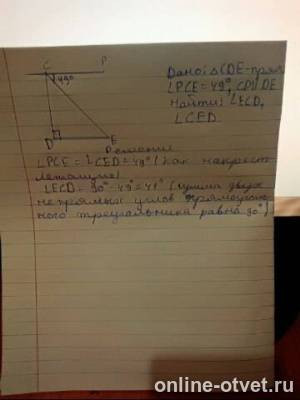 C P
49°
D E
Дано: △CDE-прям
∠PCE = 49°, CP∥DE
Найти: ∠ECD,
∠CED.
Решение
∠PCE = ∠CED = 49° (как накрест
лежащие)
∠ECD = 90° - 49° = 41° (сумма двух
непрямых углов прямоуголь
ного треугольника равна 90°)
online-otvet.ru